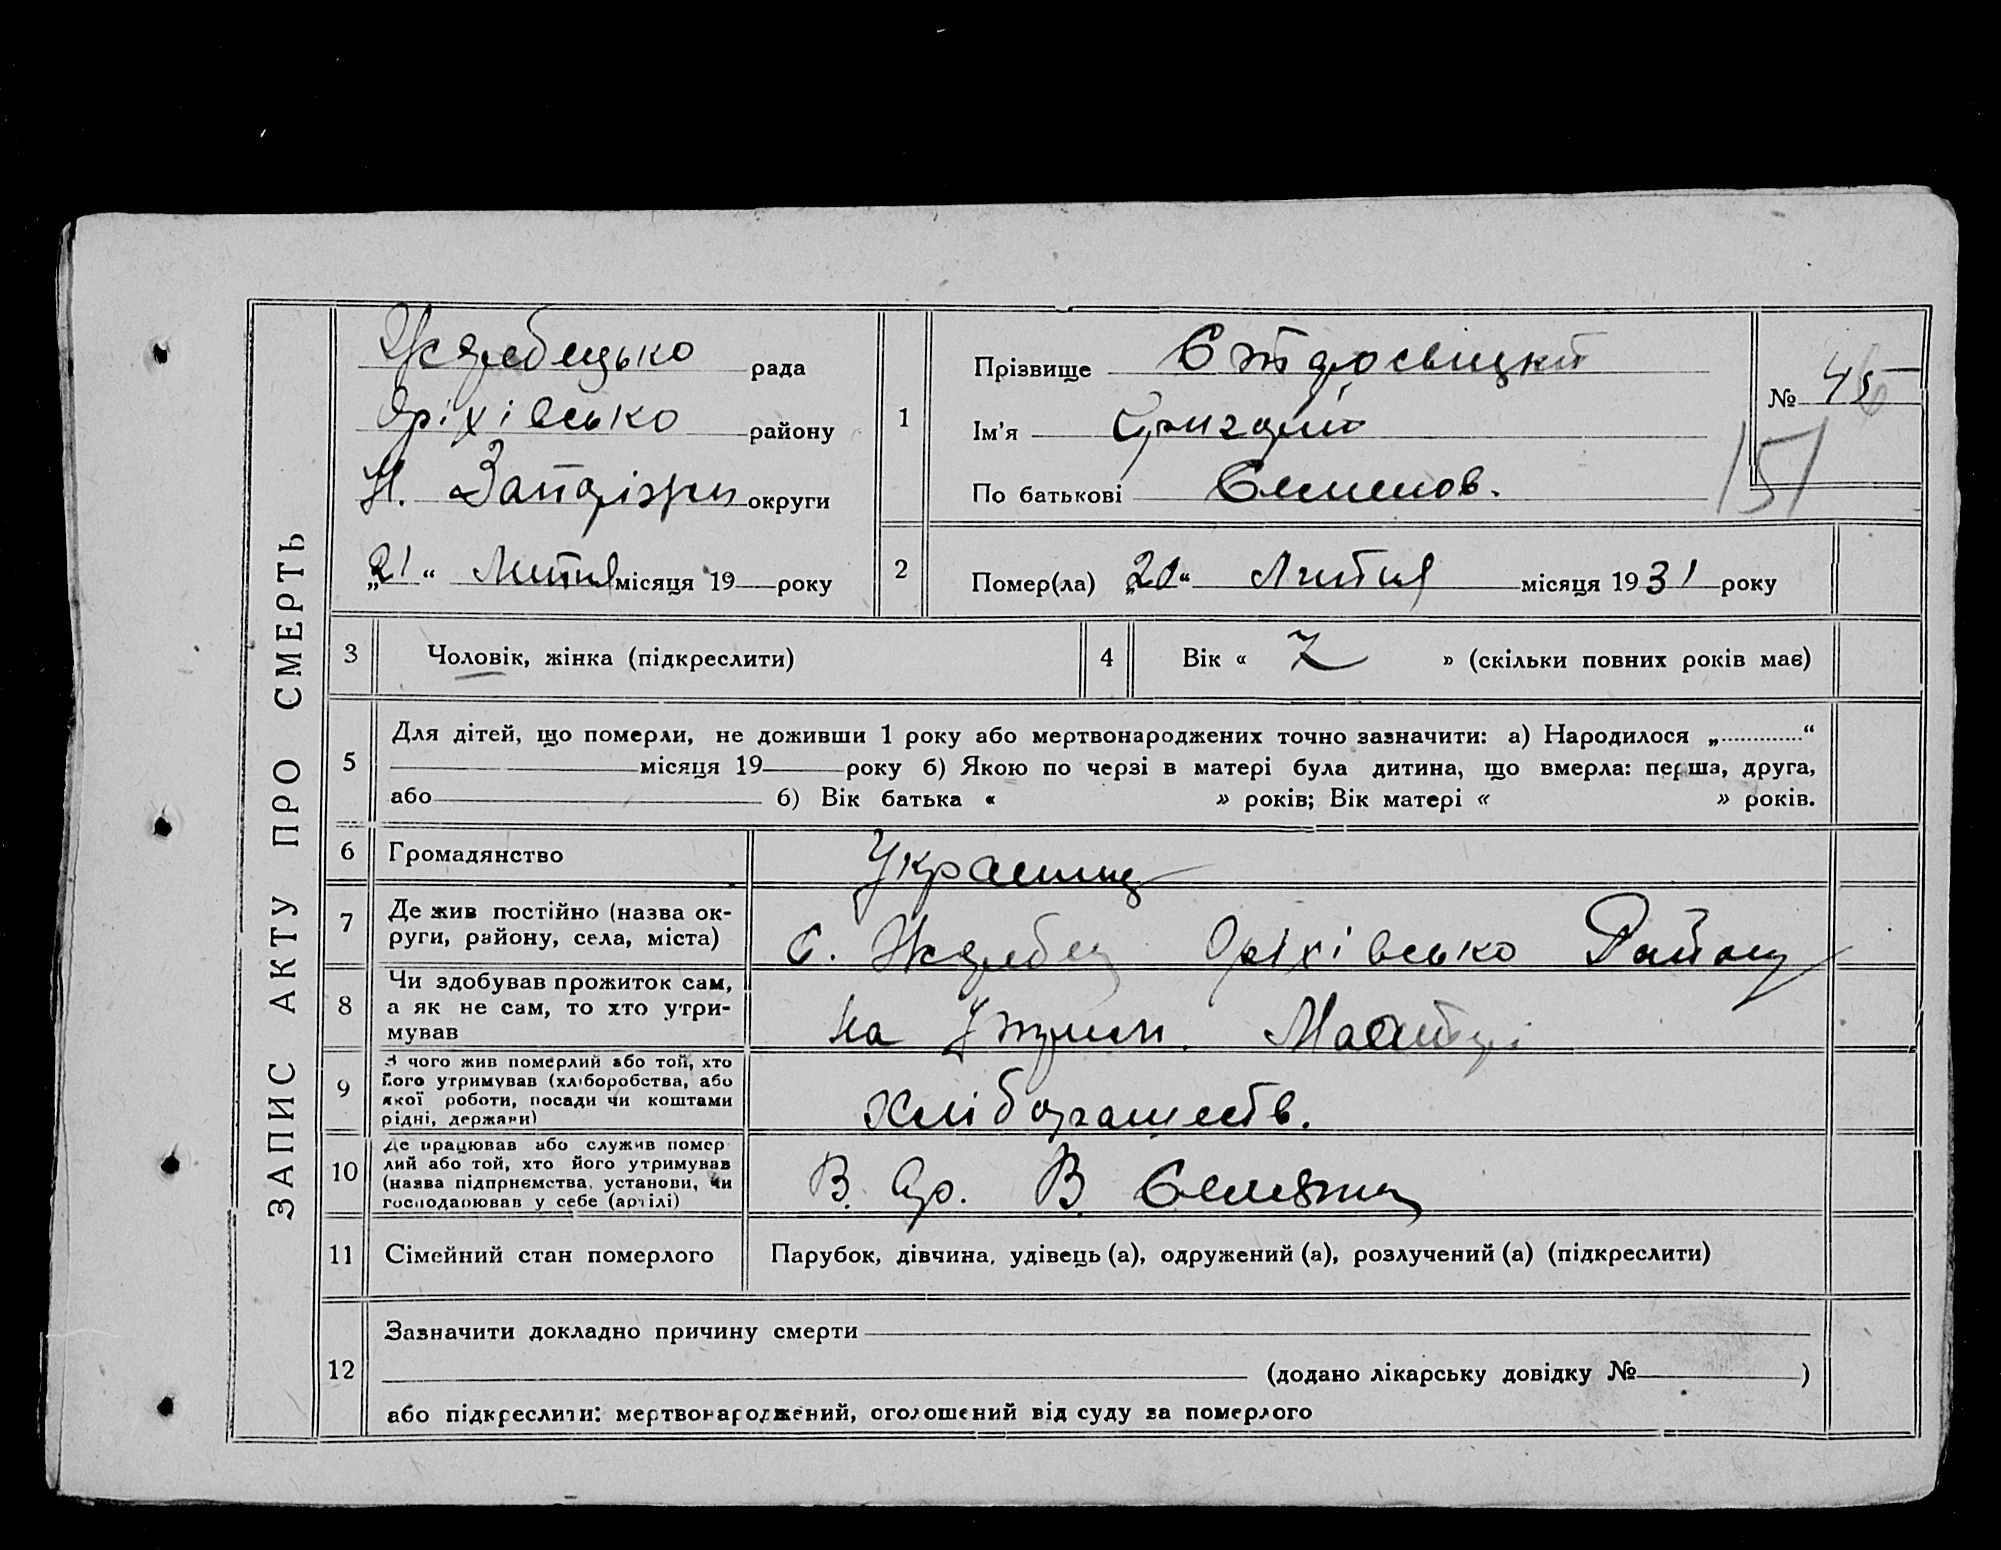 ЗАПИС АКТУ ПРО СМЕРТЬ
Жеребецько рада
Оріхівсько району
Н. Запоріжжи округи
„21“ Липня місяця 19 року
1
Прізвище
Ім'я Григорій
По батькові Семенов.
№ 45
151
2
Помер(ла) „20“ Липня місяця 1931 року
3
Чоловік, жінка (підкреслити)
4
Вік « 2 » (скільки повних років має)
5
Для дітей, що померли, не доживши 1 року або мертвонароджених точно зазначити: а) Народилося „ “
місяця 19 року б) Якою по черзі в матері була дитина, що вмерла: перша, друга,
або б) Вік батька « » років; Вік матері « » років.
6
Громадянство
Украинц
7
Де жив постійно (назва ок-
руги, району, села, міста)
С. Жеребец Оріхівсько Району
8
Чи здобував прожиток сам,
а як не сам, то хто утри-
мував
на Утрим.
9
З чого жив померлий або той, хто
його утримував (хліборобства, або
якої роботи, посади чи коштами
рідні, держави)
10
Де працював або служив помер
лий або той, хто його утримував
(назва підприємства, установи, чи
господарював у себе (артілі)
В. В
11
Сімейний стан померлого
Парубок, дівчина, удівець (а), одружений (а), розлучений (а) (підкреслити)
12
Зазначити докладно причину смерти
(додано лікарську довідку № )
або підкреслити: мертвонароджений, оголошений від суду за померлого